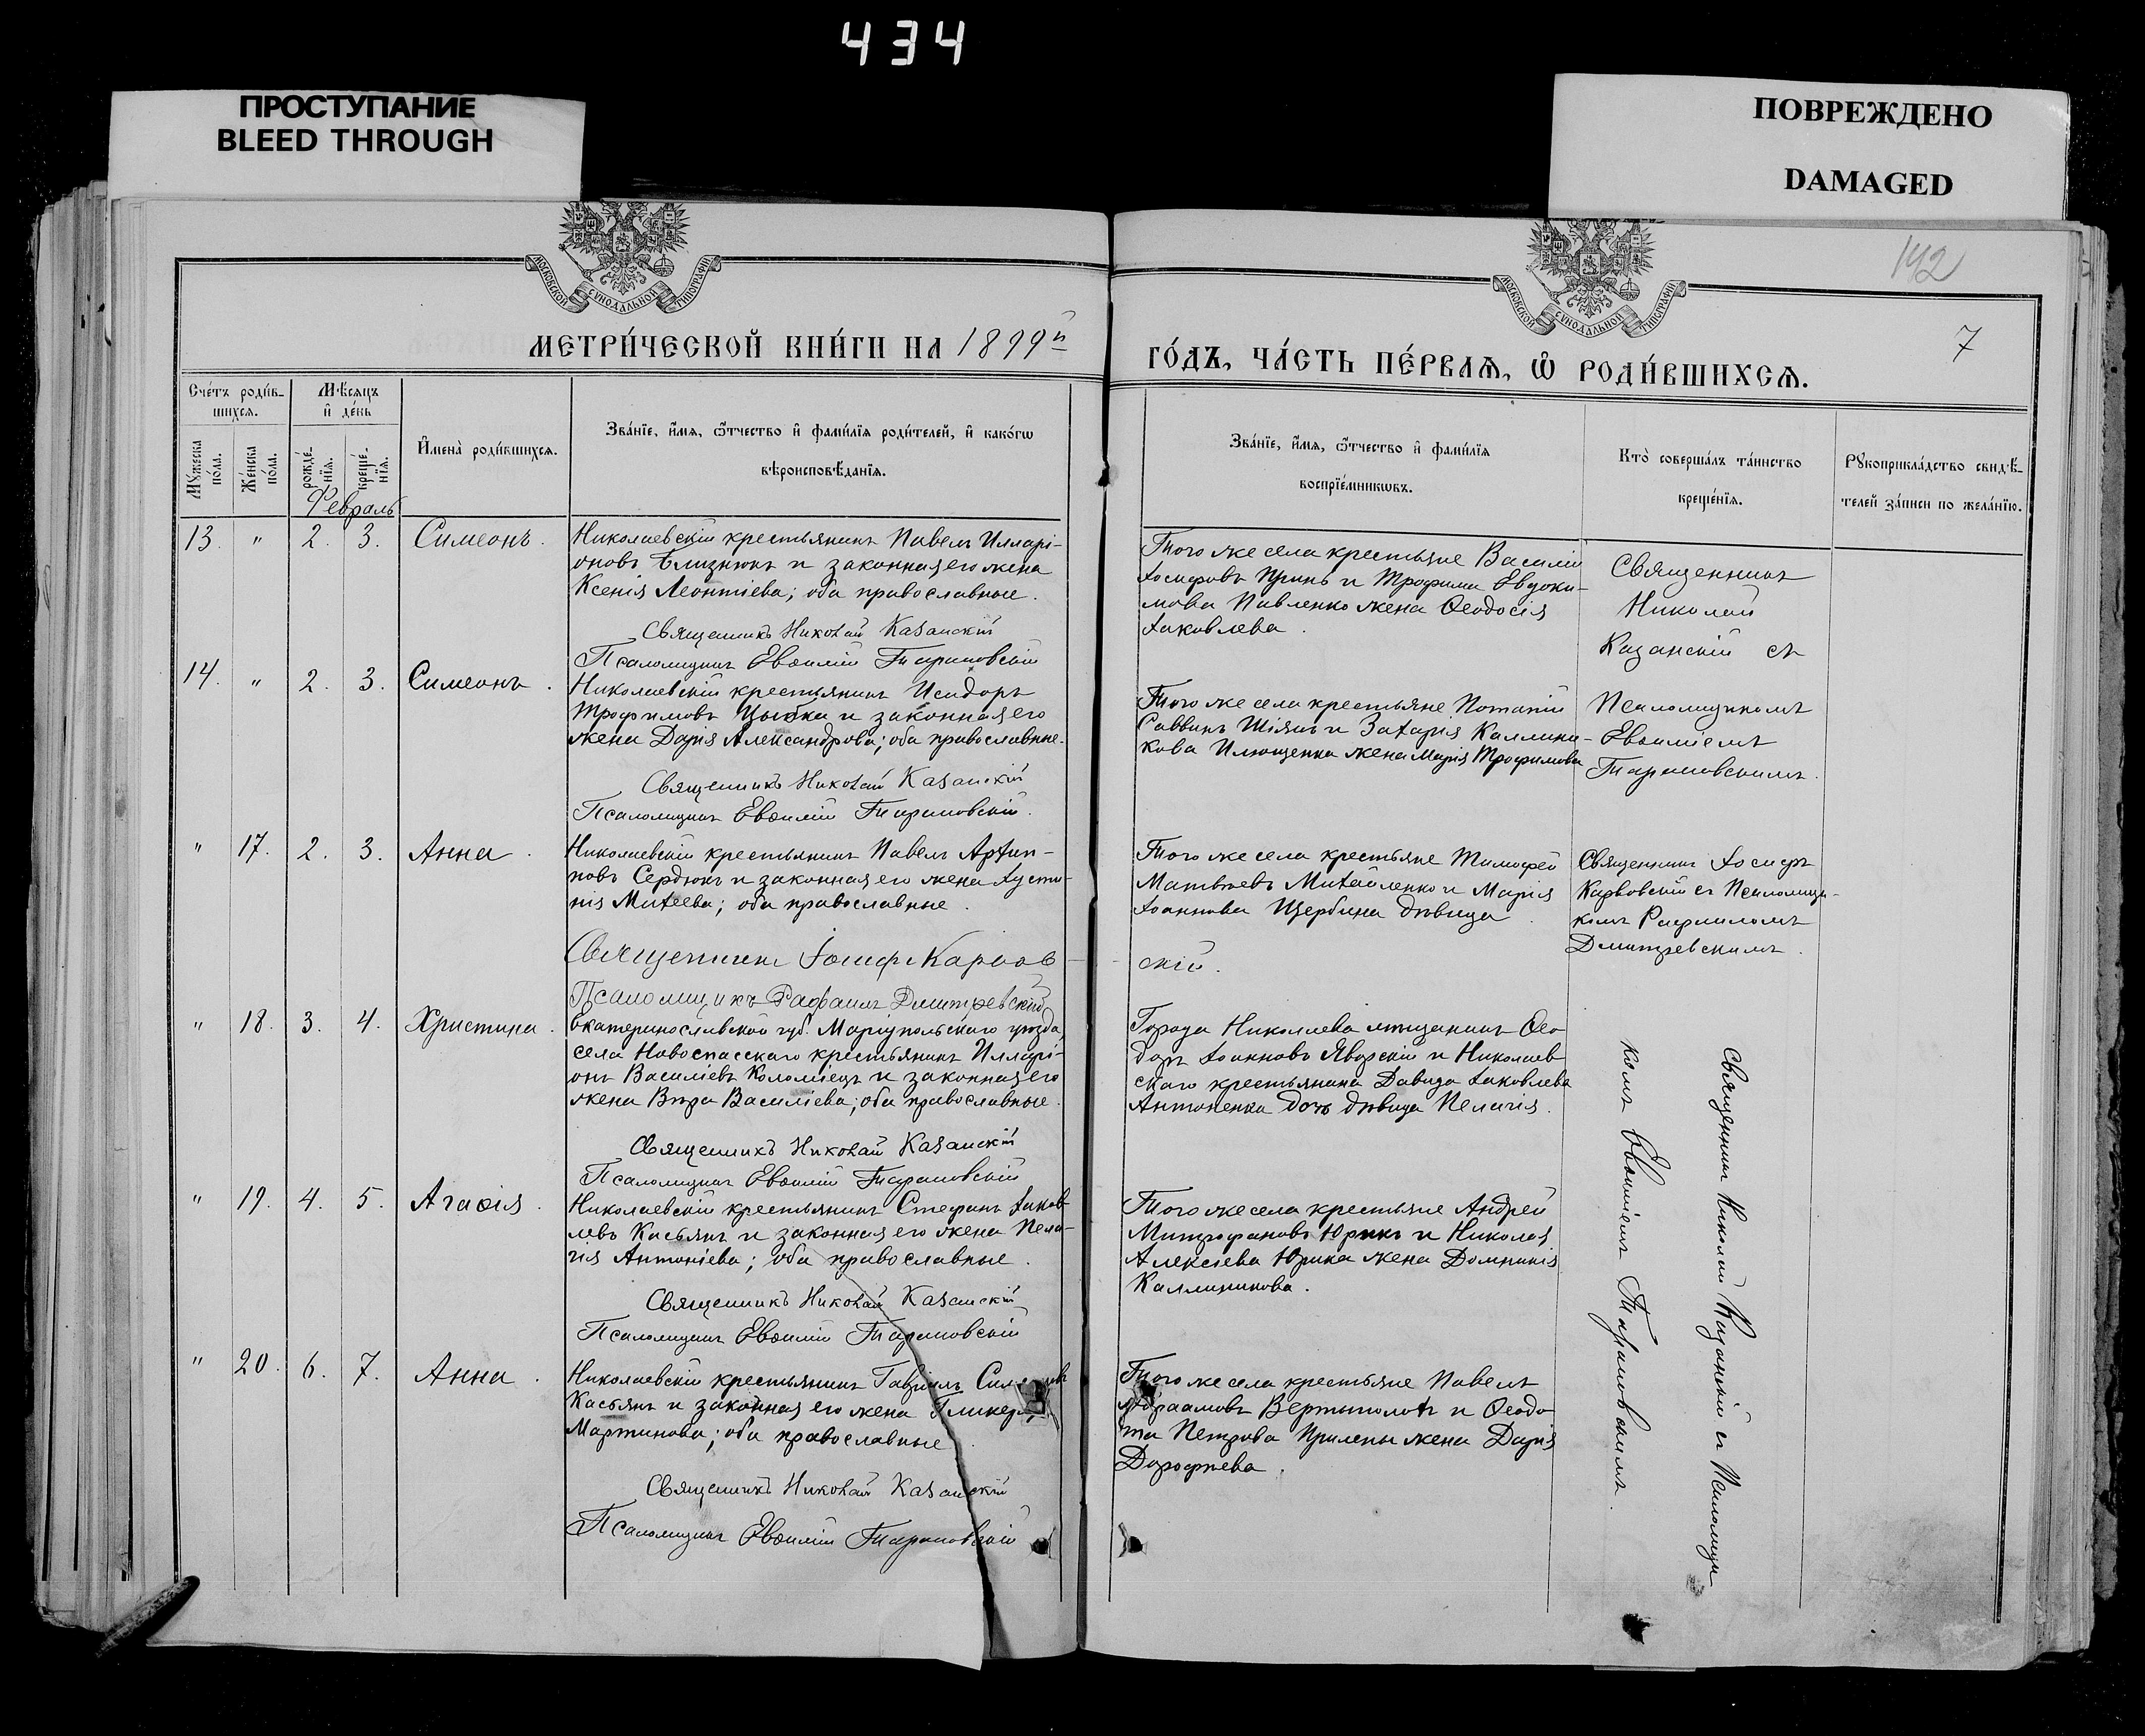 434
ПРОСТУПАНИЕ
BLEED THROUGH
ПОВРЕЖДЕНО
DAMAGED
142
7
МОСКОВСКОЙ СУНОДАЛЬНОЙ ТИПОГРАФІИ
МОСКОВСКОЙ СУНОДАЛЬНОЙ ТИПОГРАФІИ
МЕТРИ́ЧЕСКОЙ КНИ́ГИ НА 1899й
ГО́ДЪ, ЧА́СТЬ ПЕ́РВАѦ, Ѽ РОДИ́ВШИХСѦ.
Сче́тъ роди́в-
шихсѧ.
Мѣ́сѧцъ
и҆ де́нь
Мꙋжеска по́ла.
Же́нска по́ла.
рожде́-
нїѧ.
креще́-
нїѧ.
И҆мена̀ роди́вшихсѧ.
Зва́нїе, и҆́мѧ, ѻ҆́тчество и҆ фами́лїѧ роди́телей, и҆ како́гѡ
вѣроисповѣ́данїѧ.
Зва́нїе, и҆́мѧ, ѻ҆́тчество и҆ фами́лїѧ
воспрїе́мникѡвъ.
Кто̀ соверша́лъ та́инство
креще́нїѧ.
Рꙋкоприкла́дство свидѣ́-
телей за́писи по жела́нїю.
Февраль
13. " 2. 3. Симеонъ.
Николаевскій крестьянинъ Павелъ Илларі-
оновъ Близнюкъ и законная его жена
Ксенія Леонтіева; оба православные.
Священникъ Николай Казанскій
Псаломщикъ Евѳимій Тарановскій
Того же села крестьяне Василій
Іосифовъ Принь и Трофима Евдоки-
мова Павленко жена Ѳеодосія
Іаковлева.
Священникъ
Николай
Казанскій съ
14. " 2. 3. Симеонъ.
Николаевскій крестьянинъ Исидоръ
Трофимовъ Цыбка и законная его
жена Дарія Александрова; оба православные.
Священникъ Николай Казанскій
Псаломщикъ Евѳимій Тарановскій.
Того же села крестьяне Потапій
Саввинъ Шіянъ и Захарія Каллини-
кова Илющенка жена Марія Трофимова
Псаломщикомъ
Евѳиміемъ
Тарановскимъ.
" 17. 2. 3. Анна.
Николаевскій крестьянинъ Павелъ Архип-
повъ Сердюкъ и законная его жена Іусти-
нія Михеева; оба православные.
Священникъ Іосифъ Карвов
Псаломщикъ Рафаилъ Дмитревскій
Того же села крестьяне Тимофей
Матвѣевъ Михайленко и Марія
Іоаннова Щербина дѣвица.
скій.
Священникъ Іосифъ
Карвовскій съ Псаломщи-
комъ Рафаиломъ
Дмитревскимъ.
" 18. 3. 4. Христина.
Екатеринославской губ. Маріупольскаго уѣзда,
села Новоспасскаго крестьянинъ Илларі-
онъ Василіевъ Коломіецъ и законная его
жена Вѣра Василіева; оба православные.
Священникъ Николай Казанскій
Псаломщикъ Евѳимій Тарановскій
Города Николаева мѣщанинъ Ѳео-
доръ Іоанновъ Яворскій и Николаев-
скаго крестьянина Давида Іаковлева
Антоненка дочь дѣвица Пелагія.
" 19. 4. 5. Агаѳія.
Николаевскій крестьянинъ Стефанъ Іаков-
левъ Касьянъ и законная его жена Пела-
гія Антоніева; оба православные.
Священникъ Николай Казанскій
Псаломщикъ Евѳимій Тарановскій
Того же села крестьяне Андрей
Митрофановъ Юрикъ и Николая
Алексіева Юрика жена Домникія
Каллиникова.
" 20. 6. 7. Анна.
Николаевскій крестьянинъ Гавріилъ
Касьянъ и законная его жена
Мартинова; оба православные.
Священникъ Николай Казанскій
Псаломщикъ Евѳимій Тарановскій
Того же села крестьяне Павелъ
Авраамовъ Вертыполохъ и Ѳеодо-
та Петрова Прилепы жена Дарія
Дорофѣева.
Священникъ Николай Казанскій съ Псаломщи-
комъ Евѳиміемъ Тарановскимъ.